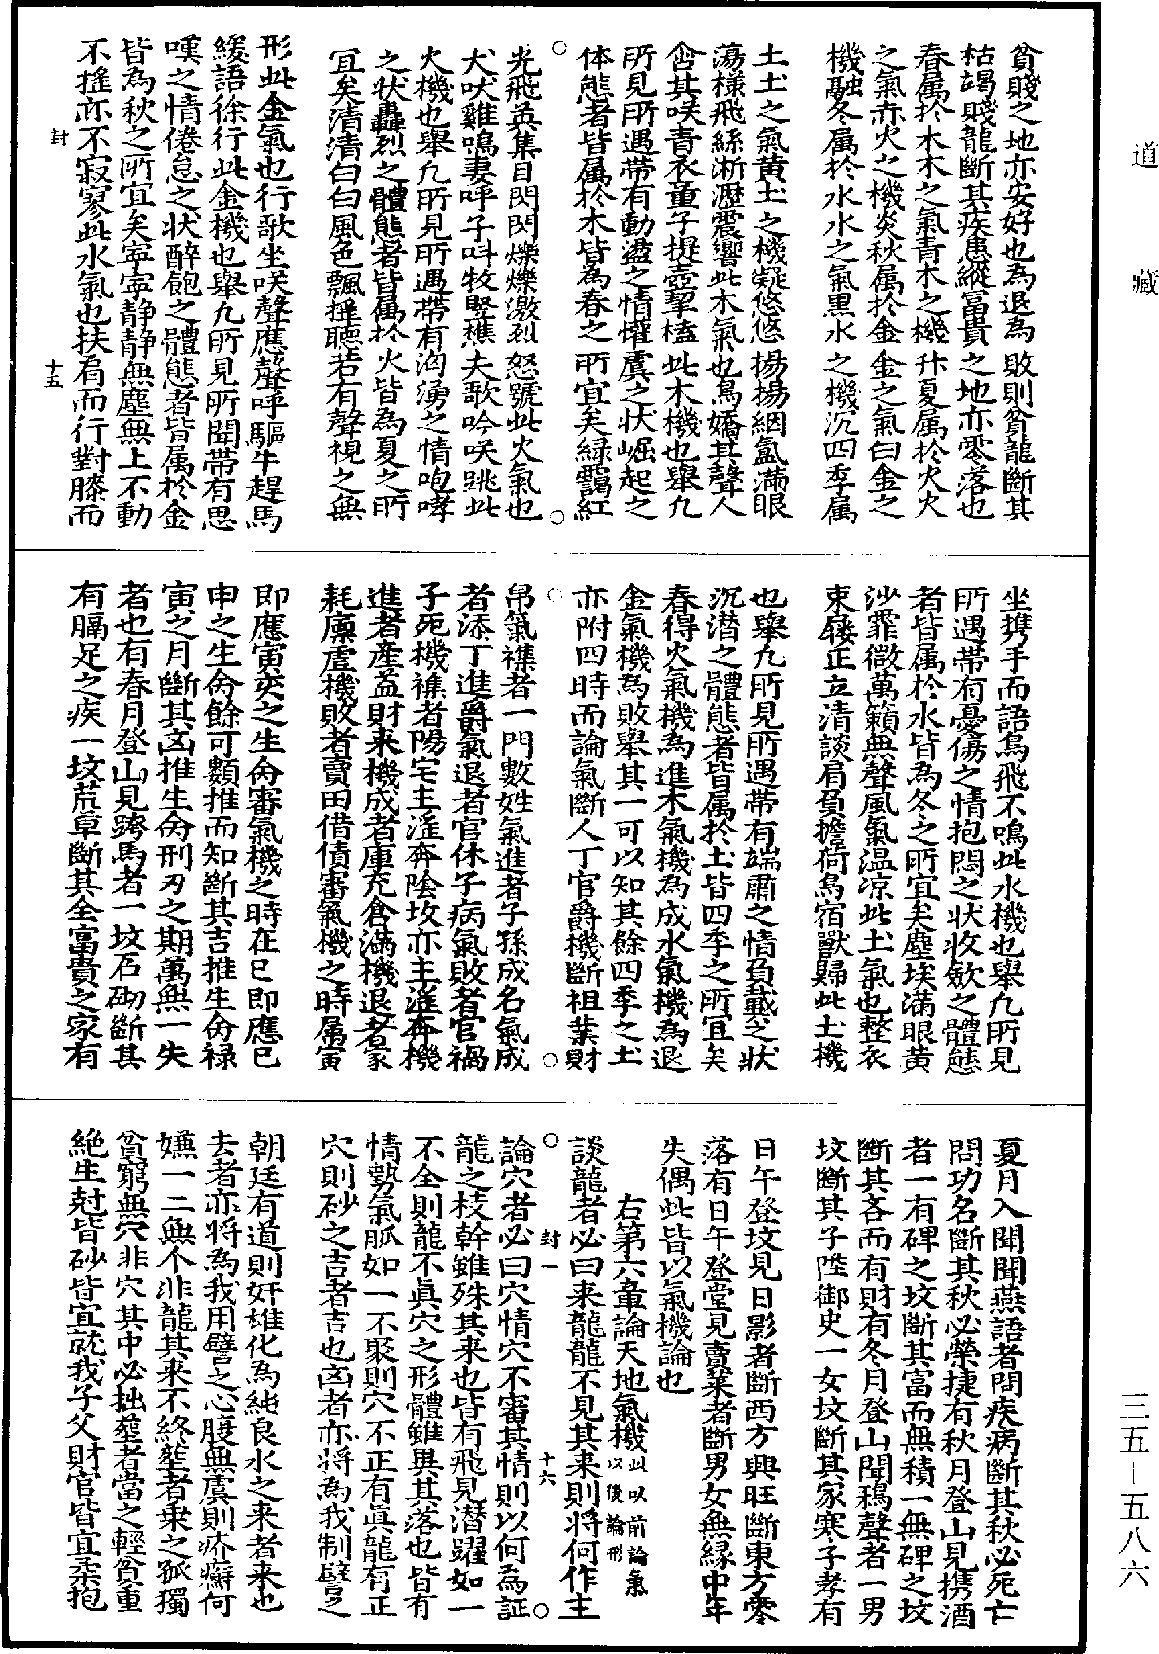 道藏
三五—五八六
貧賤之地亦安好也為退為敗則貧龍斷其
枯竭賤龍斷其疾患縱富貴之地亦零落也
春属於木木之氣青木之機升夏属於火火
之氣赤火之機炎秋属於金金之氣白金之
機融冬属於水水之氣黒水之機沉四季属
土土之氣黄土之機凝悠悠揚揚絪氲滿眼
蕩様飛絲淅瀝震響此木氣也鳥嬌其聲人
含其咲青衣童子提壺挈榼此木機也舉凢
所見所遇帶有動盪之情懽虞之状崛起之
体態者皆属於木皆為春之所宜矣緑靄紅
光飛英集目閃閃爍爍激烈怒號此火氣也
犬吠雞鳴妻呼子呌牧竪樵夫歌吟咲跳此
火機也舉凢所見所遇帶有洶湧之情咆哮
之状轟烈之體態者皆属於火皆為夏之所
宜矣清清白白風色飄揰聽若有聲視之無
形此金氣也行歌坐咲聲應聲呼驅牛趕馬
緩語徐行此金機也舉凢所見所聞帶有思
嘆之情倦怠之状醉飽之體態者皆属於金
皆為秋之所宜矣寧寧静静無塵無上不動
不揺亦不寂寥此水氣也扶肩而行對膝而
封
十五
坐携手而語鳥飛不鳴此水機也舉凢所見
所遇帶有憂傷之情抱悶之状收歛之體態
者皆属於水皆為冬之所宜矣塵埃滿眼黄
沙霏微萬籟無聲風氣温凉此土氣也整衣
束屨正立清談肩負擔荷鳥宿獸歸此土機
也舉凢所見所遇帶有端肅之情負戴之状
沉潜之體態者皆属於土皆四季之所宜矣
春得火氣機為進木氣機為成水氣機為退
金氣機為敗舉其一可以知其餘四季之土
亦附四時而論氣斷人丁官爵機斷祖業財
帛氣襍者一門數姓氣進者子孫成名氣成
者添丁進爵氣退者官休子病氣敗者官禍
子死機襍者陽宅主淫奔陰坟亦主淫奔機
進者產益財来機成者庫充倉滿機退者家
耗廩虚機敗者賣田借債審氣機之時属寅
即應寅亥之生命審氣機之時在巳即應巳
申之生命餘可類推而知斷其吉推生命禄
寅之月斷其凶推生命刑刃之期萬無一失
者也有春月登山見跨馬者一坟石砌斷其
有膈足之疾一坟荒草斷其全富貴之家有
夏月入闈聞燕語者問疾病斷其秋必死亡
問功名斷其秋必榮捷有秋月登山見携酒
者一有碑之坟斷其富而無積一無碑之坟
斷其吝而有財有冬月登山聞鴉聲者一男
坟斷其子陞御史一女坟斷其家寒子孝有
日午登坟見日影者斷西方興旺斷東方零
落有日午登堂見賣菜者斷男女無緣中年
失偶此皆以氣機論也
右第六章論天地氣機此以前論氣以後論形
談龍者必曰来龍龍不見其来則將何作主
論穴者必曰穴情穴不審其情則以何為証
封一
十六
龍之枝幹雖殊其来也皆有飛見潛躍如一
不全則龍不眞穴之形體雖異其落也皆有
情勢氣脈如一不聚則穴不正有眞龍有正
穴則砂之吉者吉也凶者亦将為我制譬之
朝廷有道則奸雄化為純良水之来者来也
去者亦将為我用譬之心腹無虞則疥癬何
嫌一二無个非龍其来不終塟者乗之孤獨
貧窮無穴非穴其中必拙塟者當之輕貧重
絶生尅皆砂皆宜就我子父財官皆宜柔抱